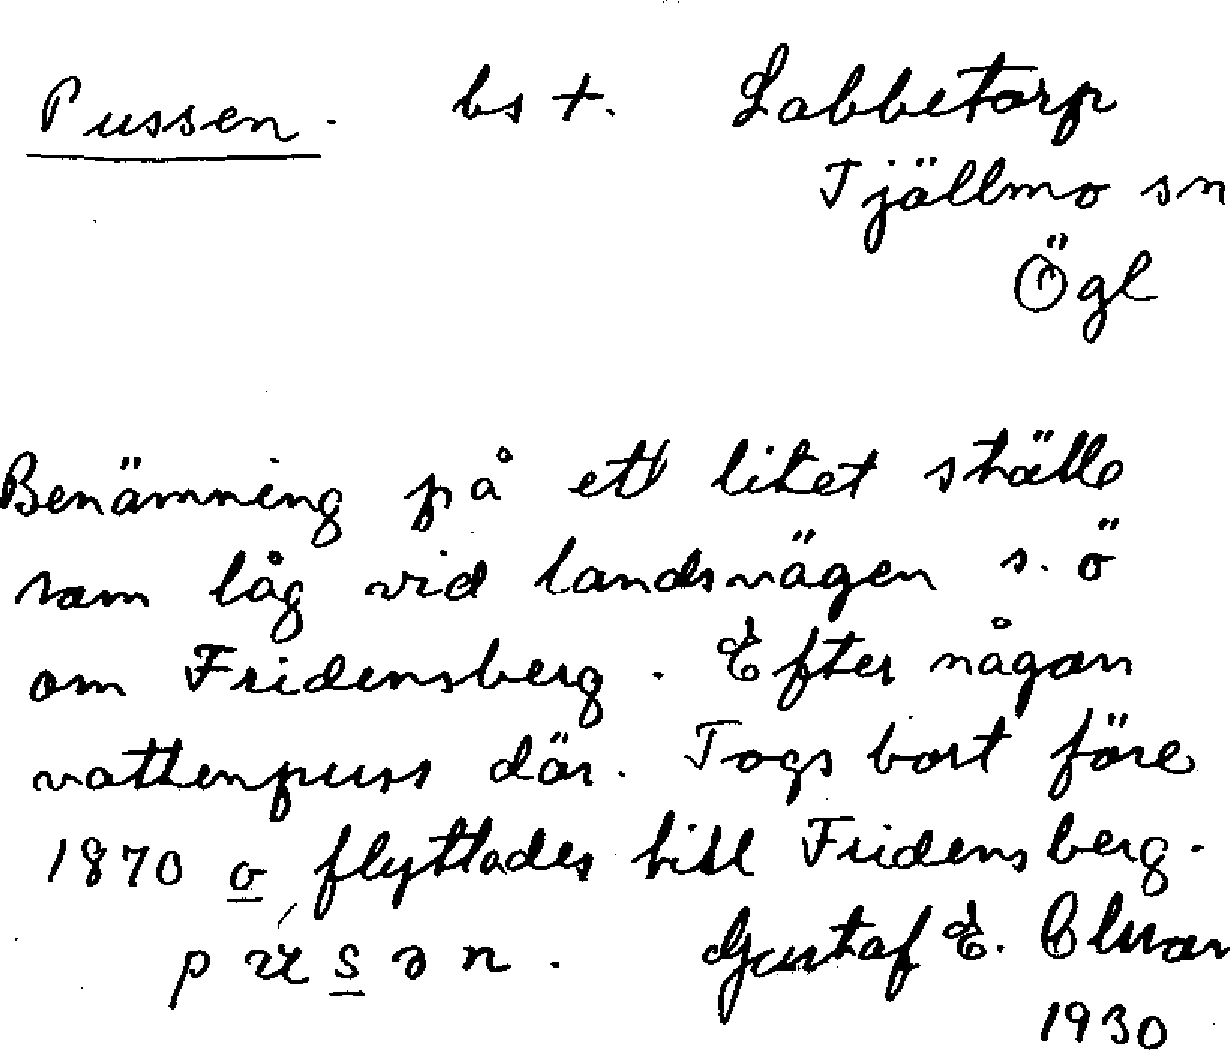 Pussen. bs +. Labbetorp
Tjällmo sn
Ögl
Benämning på ett litet ställe
som låg vid landsvägen s. ö
om Fridensberg. Efter någon
vattenpuss där. Togs bort före
1870 o flyttades till Fridensberg.
Gustaf E.
1930